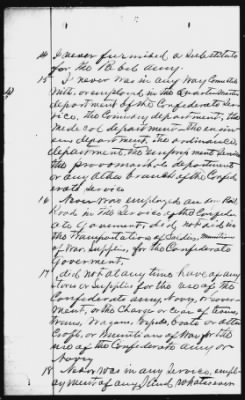 14 I never furnished a substitute
for the Rebel army.
15 I never was in any way connected
with, or employed in the Quartermasters
department of the Confederate Ser-
vice, the Comissary department, the
Medical department the engin-
eers department, the ordinance
department, the impressment service
the provo marshals department
or any other branch of the Confed-
erate Service
16 Never was employed on Rail
Road in the Service of the Confeder-
ate Government, did not aid in
the transportation of Soldiers, munitions
of War, Supplies, for the Confederate
Goverment.
17 did not at any time have any
stores or Supplies for the use of the
Confederate army, Navy, or Govern-
ment, or the Charge or Care of trains,
Teams, Wagons, Vessels, boats or other
Craft, or Munitions of War for the
use of the Confederate army or
Navy
18 Never was in any service, emplo-
yment of any kind whatsoever